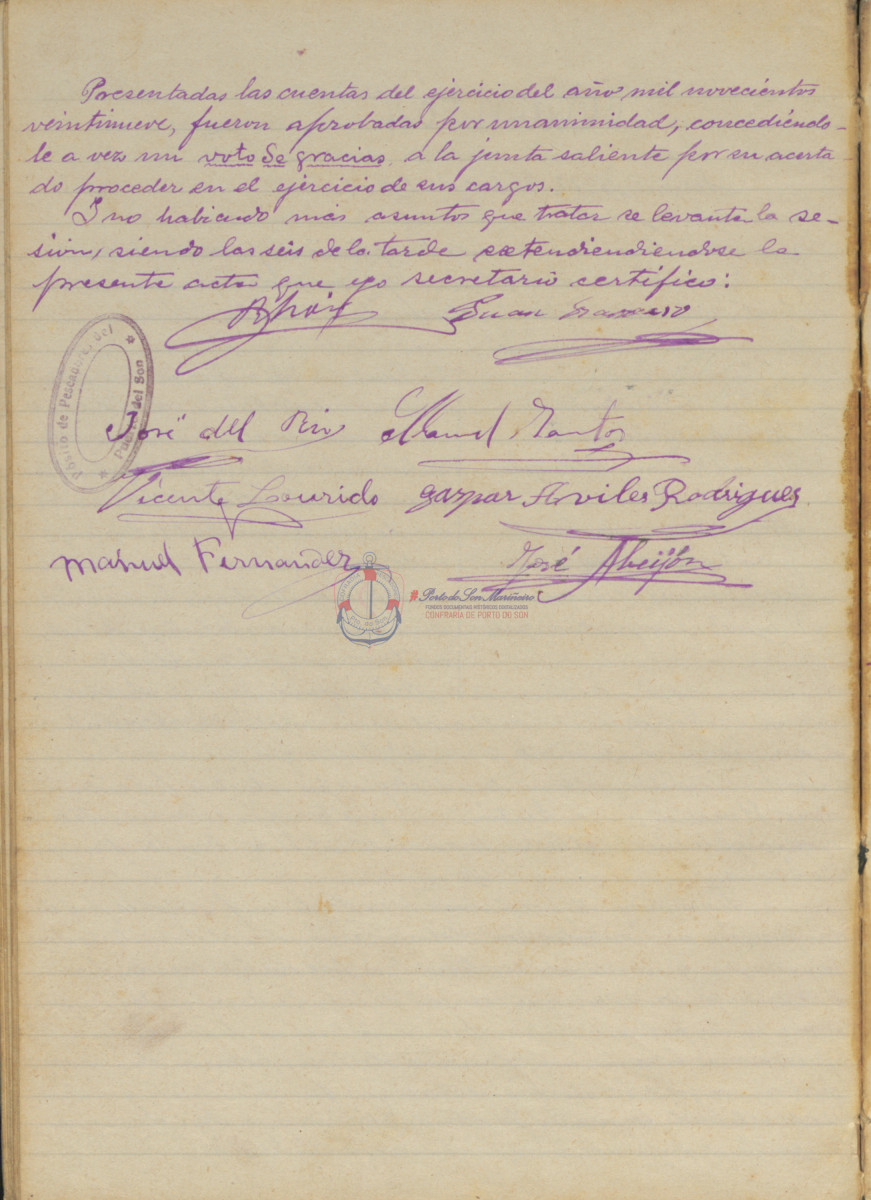 Presentadas las cuentas del ejercicio del año mil novecientos
veintinueve, fueron aprobadas por unanimidad, concediéndo-
le a vez un voto de gracias a la junta saliente por su acerta-
do proceder en el ejercicio de sus cargos.
I no habiendo más asuntos que tratar se levanta la se-
sión, siendo las seis de la tarde extendiendiendose la
presente acta que yo secretario certifico:
Juan
Pósito de Pescadores del
Puerto del Son
José del Rio Manuel Santos
Vicente Lourido Gaspar Aviles Rodrigues
Manuel Fernandez José Abeijón
#PortodoSonMariñeiro
FONDOS DOCUMENTAIS HISTÓRICOS DIXITALIZADOS
CONFRARÍA DE PORTO DO SON